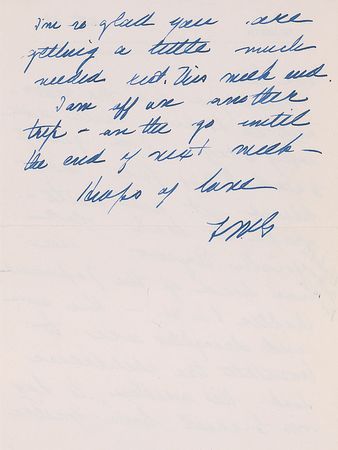 I'm so glad you are
getting a little much
needed rest. This week end.
I am off on another
trip - on the go until
the end of next week -
Heaps of love